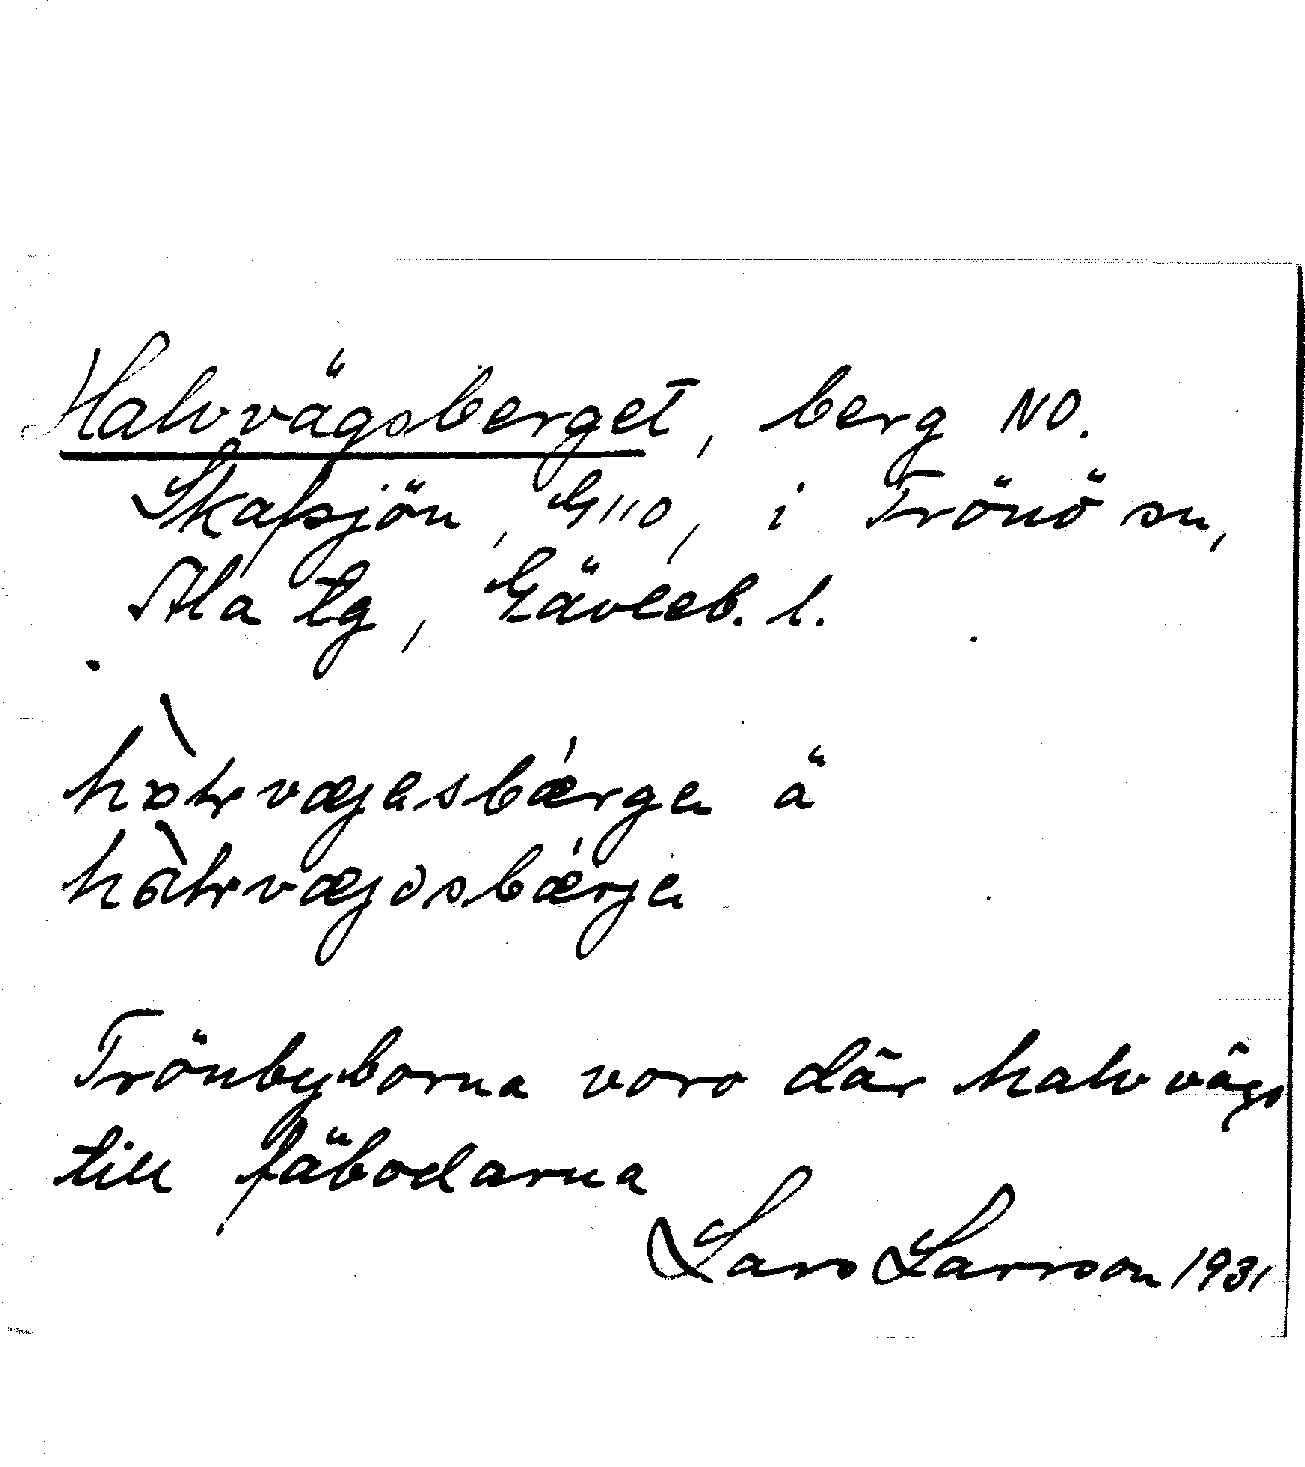 Halvvägsberget, berg NO.
Skafsjön, G110, i Trönö sn,
Ala tg, Gävleb. l.
ä
Trönbyborna voro där halvvägs
till fäbodarna
Lars Larsson 1931